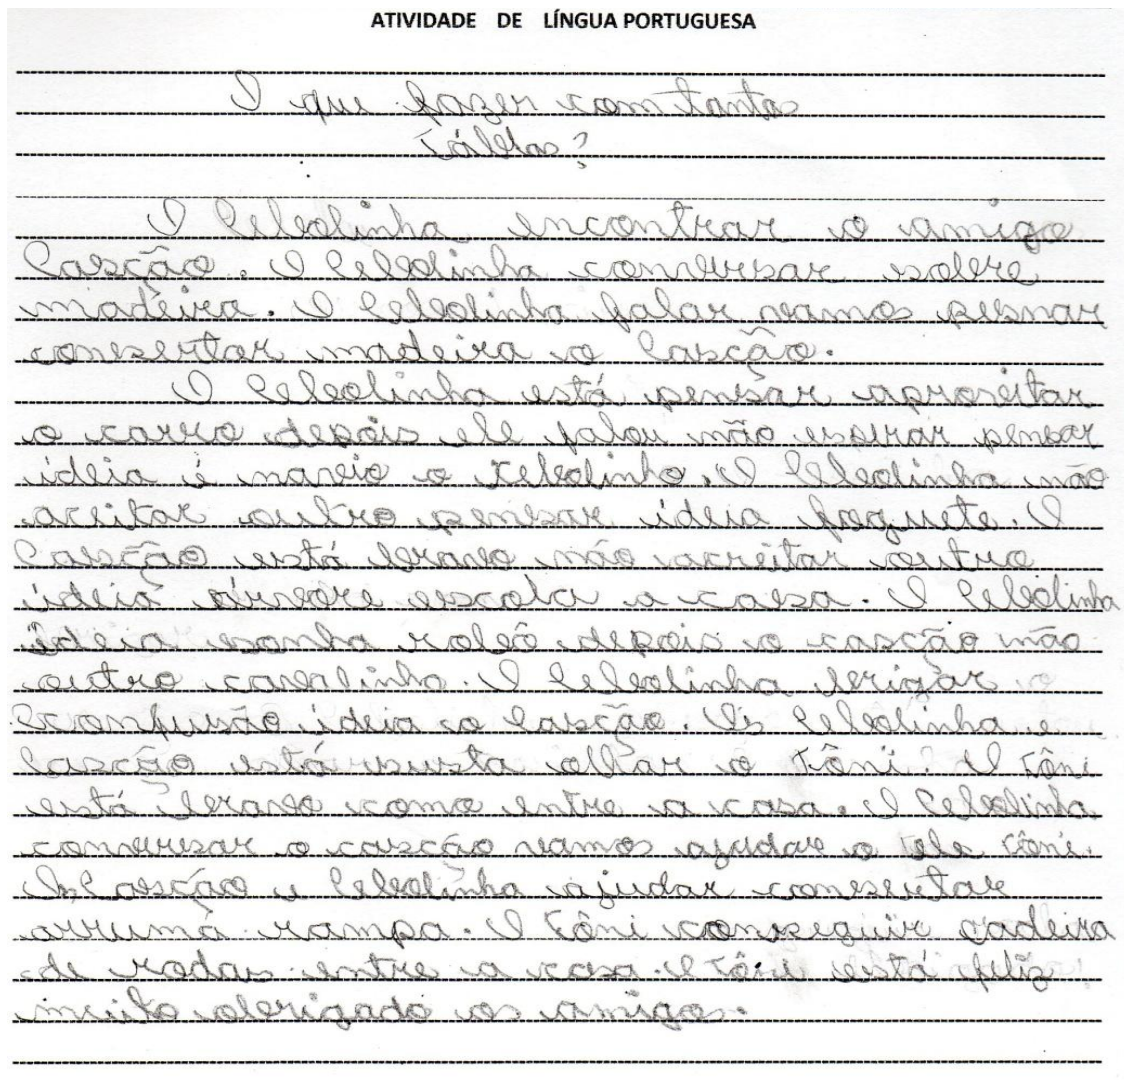 ATIVIDADE DE LÍNGUA PORTUGUESA
O que fazer com tanta
Tábbas?
O Cebolinha encontrar o amigo
Cascão. O Cebolinha conversar sobre
madeira. O Cebolinha falar vamos pesnar
consertar madeira o Cascão.
O Cebolinha está pensar aproveitar
o carro depois ele falou não espirar pensar
ideia é navio o Cebolinho. O Cebolinha não
aceitar outro pensar ideia foguete. O
Cascão está bravo não acreitar outro
ideia árvore escola a caesa. O Cebolinha
ideia sonha robô depois o cascão não
outro cavalinho. O Cebolinha brigar o
confusão ideia o Cascão. Os Cebolinha e
Cascão está susta olhar o Tôni. O Tôni
está bravo como entre a casa. O Cebolinha
conversar o cascão vamos ajudar o ele Tôni.
Cascão e Cebolinha ajudar consertar
arruma rampa. O Tôni conseguir cadeira
de rodas entre a casa. O Tôni está feliz
muito obrigado os amigo.